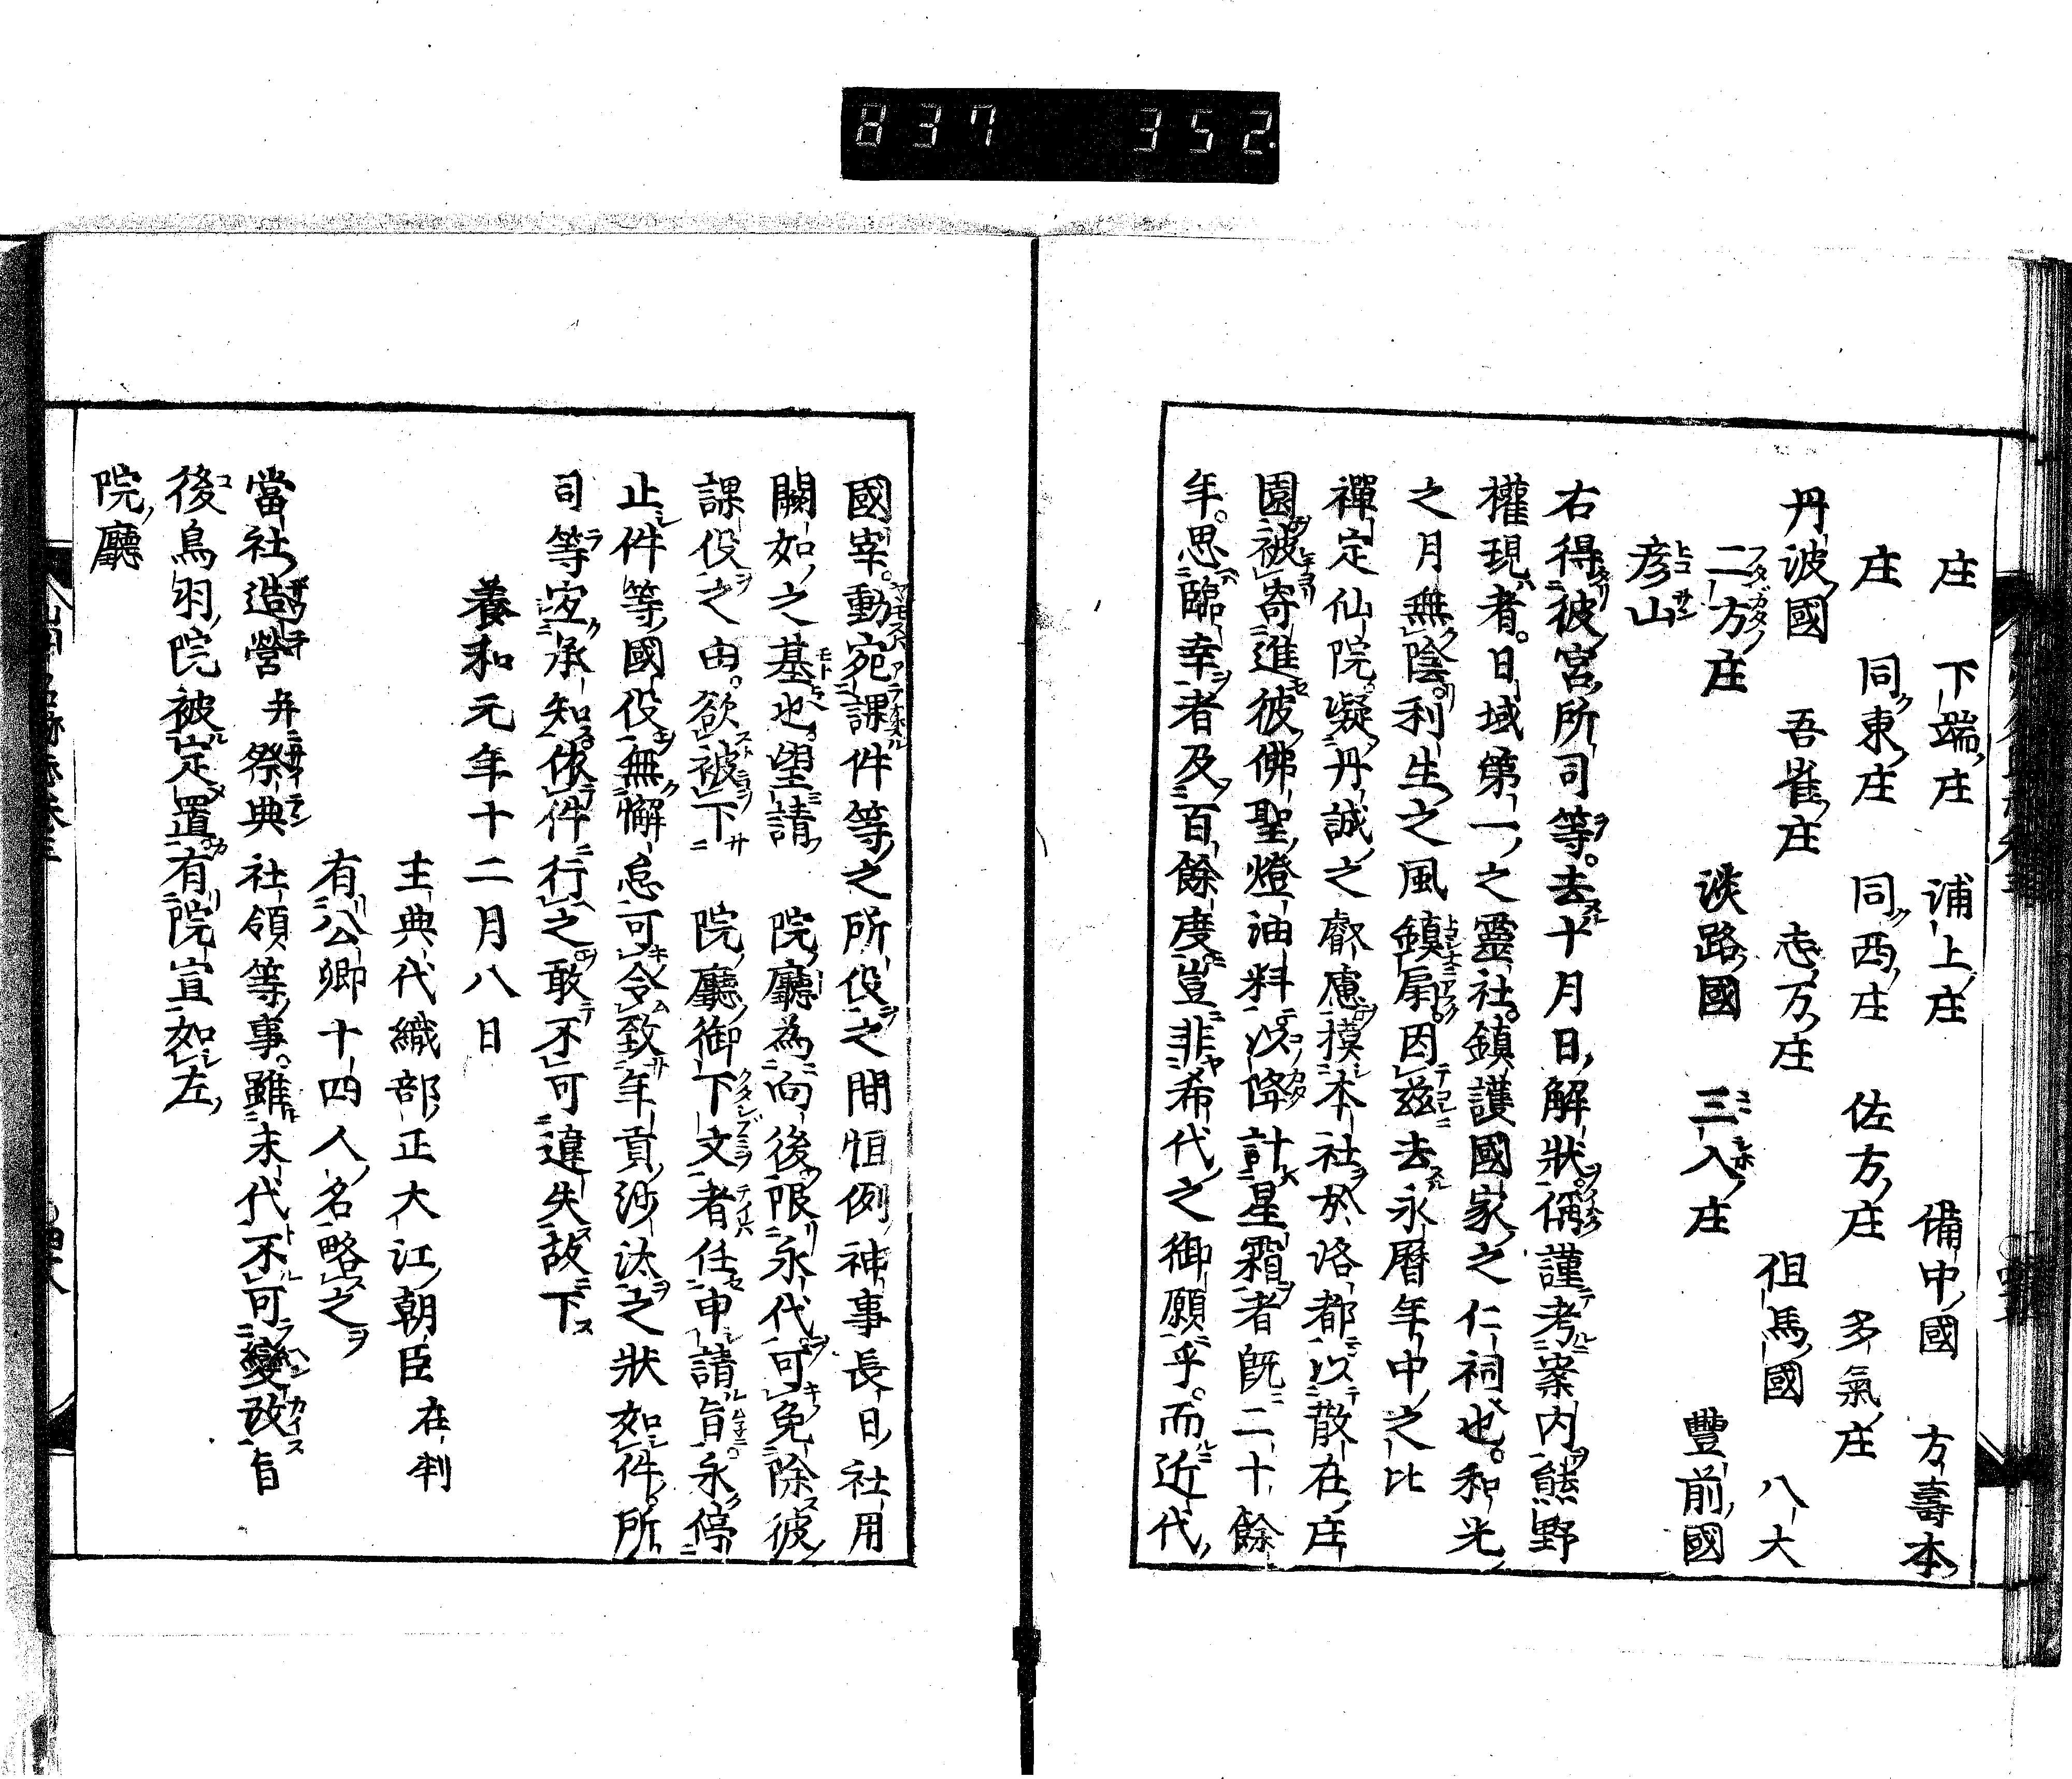 837 352
庄 下端庄 浦上庄 備中國 万壽本
庄 同東庄 同西庄 佐方庄 多氣庄
丹波國 吾雀庄 志万庄 但馬國 八大
二方庄 淡路國 三入庄 豐前國
彦山
右得彼宮所司等去十月日解狀偁謹考案内熊野
權現者日域第一之靈社鎮護國家之仁祠也和光
之月無陰利生之風鎮扇因茲去永曆年中之比
禪定仙院凝丹誠之叡慮摸本社於洛都以散在庄
園被寄進彼佛聖燈油料以降計星霜者既二十餘
年思臨幸者及百餘度豈非希代之御願乎而近代
國宰動宛課件等之所役之間恒例神事長日社用
闕如之基也望請 院廳為向後限永代可免除彼
課役之由欲被下 院廳御下文者任申請旨永停
止件等國役無懈怠可令致年貢沙汰之狀如件所
司等宜承知依件行之敢不可違失故下
養和元年十二月八日
主典代織部正大江朝臣在判
有公卿十四人名略之
當社造營并祭典社領等事雖末代不可變改旨
後鳥羽院被定置有院宣如左
院廳